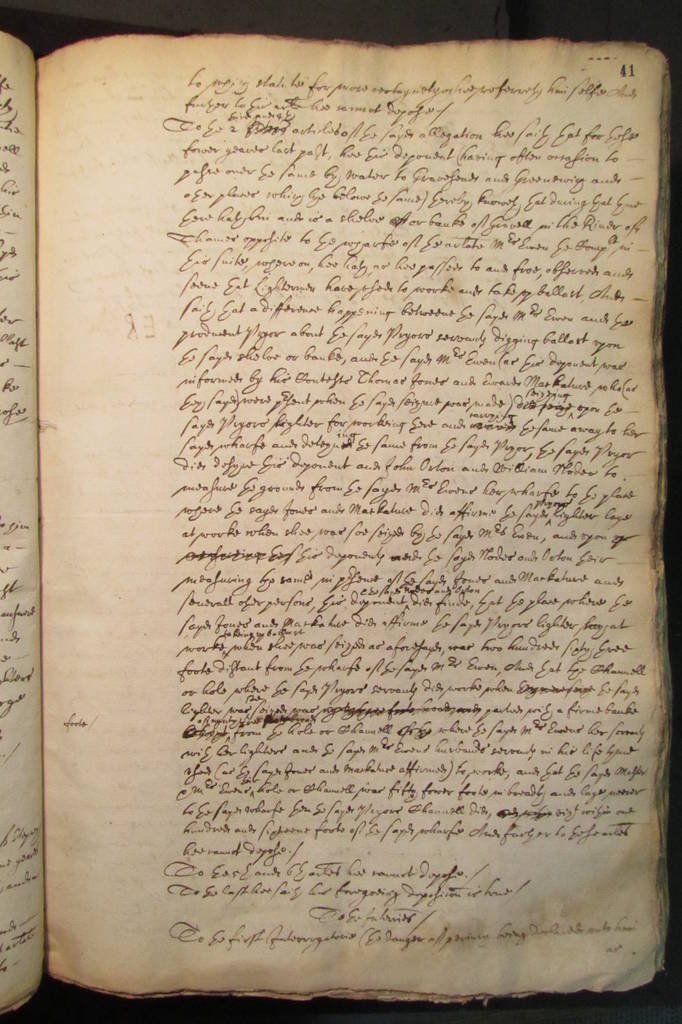 41
for more certaynty hee referreth himselfe And
further to this arle hee cannot depose./
To the 2 articles of the sayd allegation hee saith that for these
fower yeares last past, hee this deponent (having often occasion to
passe over the same by water to Gravesend and Greenewich and
other places which lye below the same) thereby knoweth that during that tyme
there hath bin and is a shelve or banke of gravell in the River of
Thames opposite to the wharfe of the arlate Mrs Ewen the in
this suite, whereon, hee hath, as hee passed to and froe, observed and
seene that Lightermen have used to worke and take up ballast, And
saith that a difference happening betweene the sayd Mrs Ewen and the
producent Pryor about the sayd Pryors servants digging ballast upon
the sayd shelve or banke, and the sayd Mrs Ewen (as this deponent was
informed by his Contests Thomas Jones and Edward Markature who (as
they sayd) were present when the sayd seizure was made) seizing upon the
sayd Pryors lighter for working there and carrying the same away to her
sayd wharfe and deteyning the same from the sayd Pryor, the sayd Pryor
did desyre this deponent and John Orton and William Noder to
measure the ground from the sayd Mrs Ewens her wharfe to the place
where the sayd Jones and Markature did affirme the sayd Pryors lighter laye
at worke when shee was soe seized by the sayd Mrs Ewen, and upon
this deponents and the sayd Noders and Orton their
measuring the same in presence of the sayd Jones and Markature and
severall other persons, this deponent the sayd Noder and Orton did finde, that the place where the
sayd Jones and Markature did affirme the sayd Pryors lighter lay at
worke taking up ballast when shee was seized as aforesayd, was two hundred sixty three
foote distant from the wharfe of the sayd Mrs Ewen, And that the Channell
or hole where the sayd Pryors servants did worke when the sayd
lighter was seized was parted with a firme banke
foote/
from the hole or Channell where the sayd Mrs Ewens her servants
with her lighters and the sayd Mrs Ewens husbands servants in his life tyme
used (as the sayd Jones and Markature affirmed) to worke, and that the sayd
Mrs Ewens hole or Channell was fifty fower foote in breadth and laye neerer
to the sayd wharfe then the sayd Pryors Channell did, within one
hundred and sixteene foote of the sayd wharfe And further to these arles
hee cannot depose./
To the 5th and 6th arles hee cannot depose./
To the last hee saith his foregoeing deposition is true/
To the Interries/
To the first Interrogatorie (the danger of periury being declared unto him